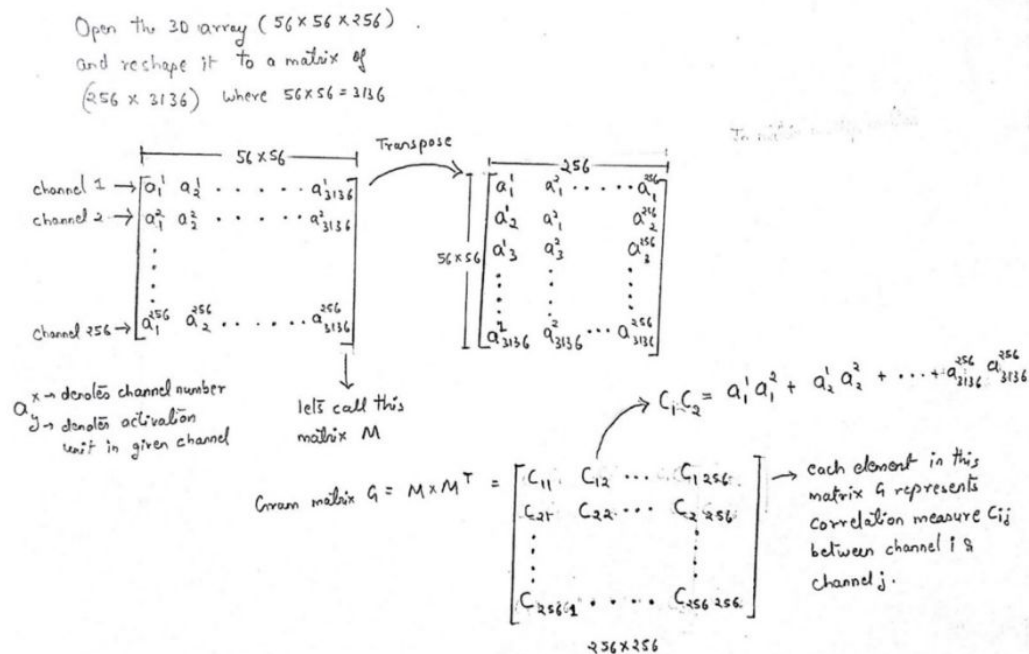 Open the 3D array (56×56×256).
and reshape it to a matrix of
(256 × 3136) where 56×56 = 3136
56×56
Transpose
256
channel 1 → a¹₁ a¹₂ · · · · · · a¹₃₁₃₆
channel 2 → a²₁ a²₂ · · · · · · a²₃₁₃₆
channel 256 → a²⁵⁶₁ a²⁵⁶₂ · · · · · · a²⁵⁶₃₁₃₆
56×56
a¹₁ a²₁ · · · · · a²⁵⁶₁
a¹₂ a²₁ a²⁵⁶₂
a¹₃ a²₃ a²⁵⁶₃
a²₃₁₃₆ a²₃₁₃₆ · · · a²⁵⁶₃₁₃₆
a x → denotes channel number
y → denotes activation
unit in given channel
lets call this
matrix M
C₁C₂ = a¹₁a²₁ + a¹₂a²₂ + · · · + a²⁵⁶₃₁₃₆ a²⁵⁶₃₁₃₆
Gram matrix G = M × Mᵀ =
C₁₁ C₁₂ · · · C₁ ₂₅₆
C₂₁ C₂₂ · · · C₂ ₂₅₆
C₂₅₆ ₁ · · · · · C₂₅₆ ₂₅₆
256×256
→ each element in this
matrix G represents
correlation measure Cij
between channel i &
channel j.